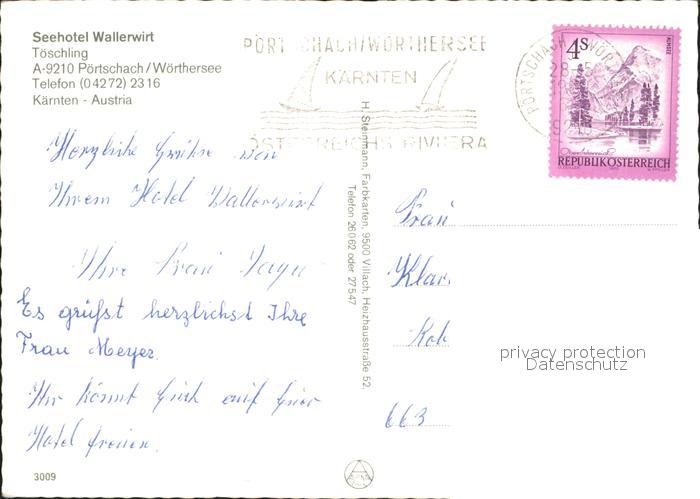 Seehotel Wallerwirt
Töschling
A-9210 Pörtschach/Wörthersee
Telefon (04272) 2316
Kärnten - Austria
PÖRTSCHACH/WÖRTHERSEE
KÄRNTEN
ÖSTERREICHS RIVIERA
4 S
ALMSEE
REPUBLIK ÖSTERREICH
Herzliche Grüße von
Ihrem Hotel Wallerwirt
Ihre Frau
Es grüßt herzlichst Ihre
Frau Meyer.
Ihr könnt Euch auf Euer
Hotel freuen.
H. Steinmann, Farbkarten, 9500 Villach, Heizhausstraße 52,
Telefon 26062 oder 27547
Frau
Klar
Rob
663
privacy protection
Datenschutz
3009